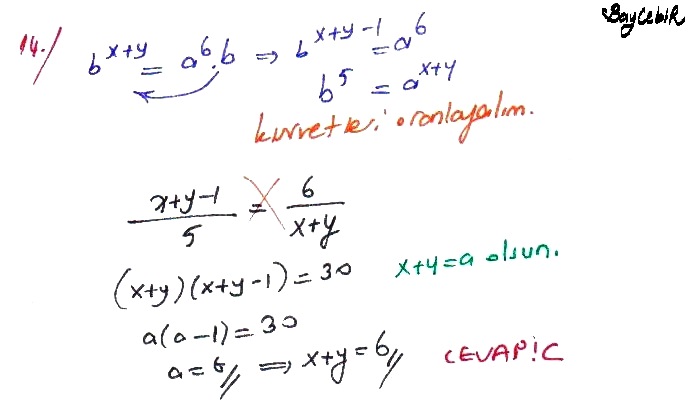 BayCebiR
14./ b^{x+y} = a^6 . b ⇒ b^{x+y-1} = a^6
b^5 = a^{x+y}
kuvvetleri oranlayalım.
\frac{x+y-1}{5} = \frac{6}{x+y}
(x+y)(x+y-1) = 30 x+y=a olsun.
a(a-1) = 30
a = 6// ⇒ x+y = 6// CEVAP:C